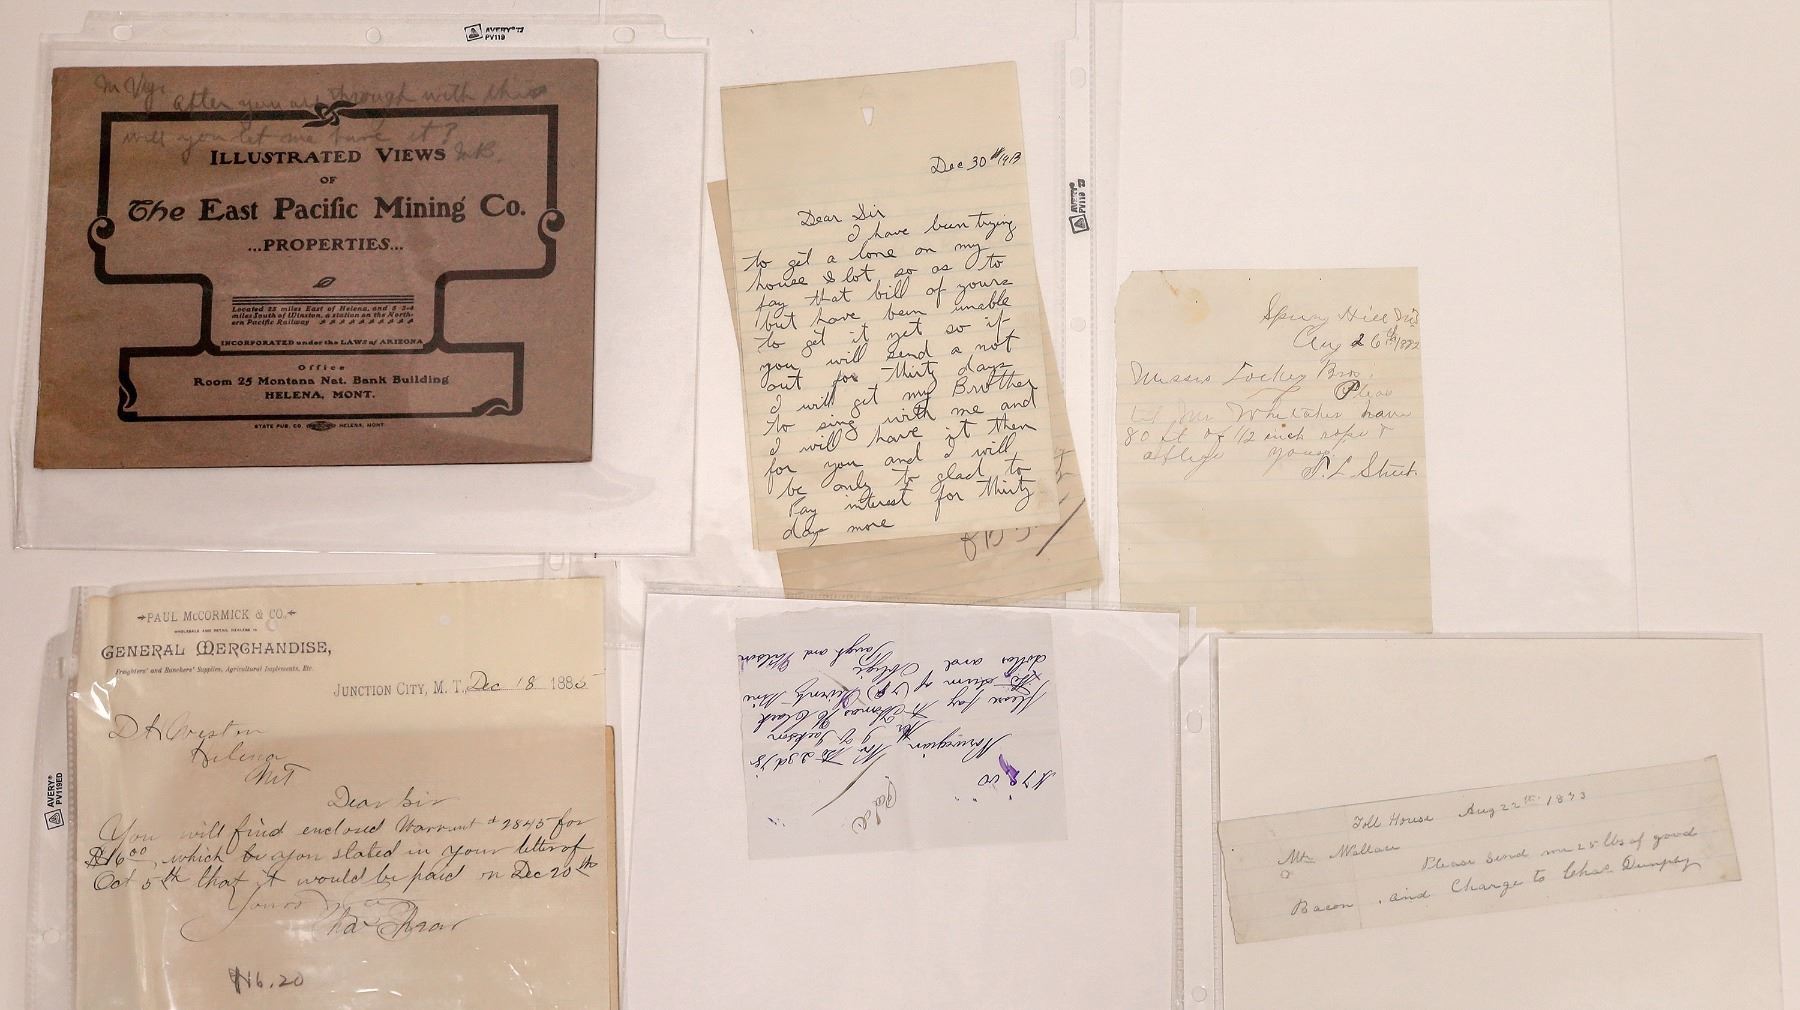 AVERY®
PV119
After you are through with this
will you let me have it?
ILLUSTRATED VIEWS
OF
The East Pacific Mining Co.
...PROPERTIES...
Located 23 miles East of Helena, and 5 3-4
miles South of Winston, a station on the North-
ern Pacific Railway
INCORPORATED under the LAWS of ARIZONA
Office
Room 25 Montana Nat. Bank Building
HELENA, MONT.
STATE PUB. CO. HELENA, MONT.
Dec 30th 1913
Dear Sir
I have been trying
to get a lone on my
house & lot so as to
pay that bill of yours
but have been unable
to get it yet so if
you will send a not
out for thirty days
I will get my Brother
to sing with me and
I will have it then
for you and I will
be only to glad to
Pay interest for thirty
days more
AVERY®
PV119
Spring Hill
Aug 26th 1882
Messrs Lockey Bros.
Pleas
let Mr Whitaker have
80 ft of 1/2 inch rope &
oblige yours
S. L. Street
PAUL McCORMICK & CO.
WHOLESALE AND RETAIL DEALERS IN
GENERAL MERCHANDISE,
Freighters' and Ranchers' Supplies, Agricultural Implements, Etc.
JUNCTION CITY, M. T., Dec 18 1885
D H Weston
Helena
MT
Dear Sir
You will find enclosed Warrant # 2845 for
$16 00, which by you stated in your letter of
Oct 5th that it would be paid on Dec 20th
Yours
$16.20
AVERY®
PV119ED
$78.00
Norwegian
Mr of Jackson
Please pay to Thomas H Clark
the sum of (78) Seventy
dollars and Oblige
and Wilson
Paid
Toll House Aug 22th 1873
Mr Wallace
Please send me 25 lbs of good
Bacon, and Charge to Chas Dumpsy